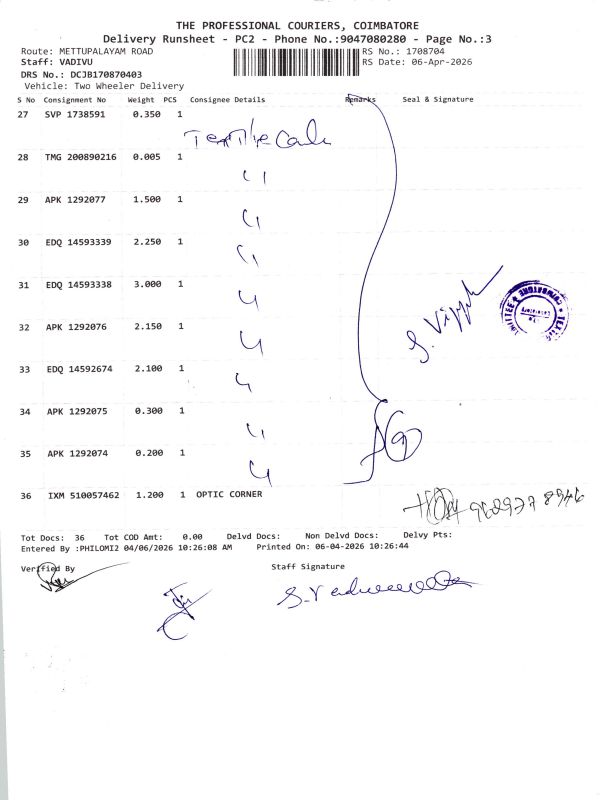 THE PROFESSIONAL COURIERS, COIMBATORE
Delivery Runsheet - PC2 - Phone No.:9047080280 - Page No.:3
Route: METTUPALAYAM ROAD RS No.: 1708704
Staff: VADIVU RS Date: 06-Apr-2026
DRS No.: DCJB170870403
Vehicle: Two Wheeler Delivery
S No Consignment No Weight PCS Consignee Details Remarks Seal & Signature
27 SVP 1738591 0.350 1
28 TMG 200890216 0.005 1
29 APK 1292077 1.500 1
30 EDQ 14593339 2.250 1
31 EDQ 14593338 3.000 1
S. Vijji
32 APK 1292076 2.150 1
33 EDQ 14592674 2.100 1
34 APK 1292075 0.300 1
9
35 APK 1292074 0.200 1
36 IXM 510057462 1.200 1 OPTIC CORNER
Tot Docs: 36 Tot COD Amt: 0.00 Delvd Docs: Non Delvd Docs: Delvy Pts:
Entered By :PHILOMI2 04/06/2026 10:26:08 AM Printed On: 06-04-2026 10:26:44
Verified By Staff Signature